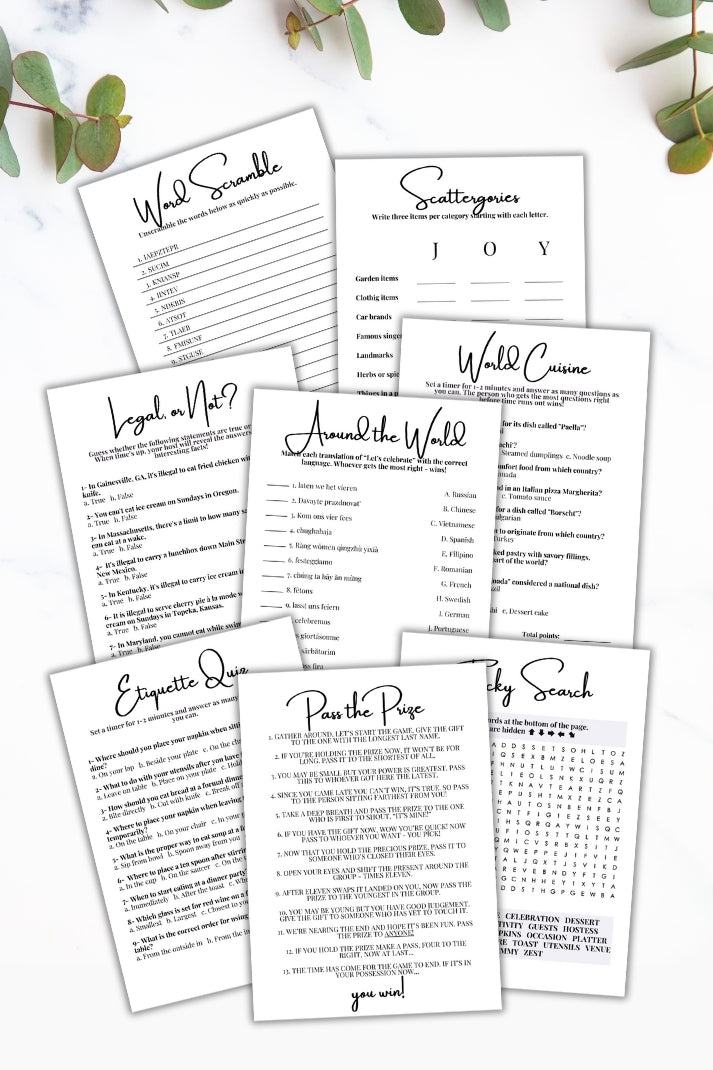 Word Scramble
Unscramble the words below as quickly as possible.
1. IAEPZTEPR
2. SUCIM
3. KNIANSP
4. IINTEV
5. NDKRIS
6. ATSOT
7. TLAEB
8. FMISUNF
9. STGUSE
Scattergories
Write three items per category starting with each letter.
J O Y
Garden items
Clothig items
Car brands
Famous singe
Landmarks
Herbs or spic
Things in a p
Legal, or Not?
Guess whether the following statements are true or
When time's up, your host will reveal the answers
interesting facts!
1- In Gainesville, GA, it's illegal to eat fried chicken wit
knife.
a. True b. False
2- You can't eat ice cream on Sundays in Oregon.
a. True b. False
3- In Massachusetts, there's a limit to how many sa
can eat at a wake.
a. True b. False
4- It's illegal to carry a lunchbox down Main Stre
New Mexico.
a. True b. False
5- In Kentucky, it's illegal to carry ice cream in
a. True b. False
6- It is illegal to serve cherry pie à la mode w
cream on Sundays in Topeka, Kansas.
a. True b. False
7- In Maryland, you cannot eat while swim
a. True b. False
Around the World
Match each translation of "Let's celebrate" with the correct
language. Whoever gets the most right - wins!
1. laten we het vieren
2. Davayte prazdnovat'
3. Kom ons vier fees
4. chughahaja
5. Ràng wǒmen qìngzhù yīxià
6. festeggiamo
7. chúng ta hãy ăn mừng
8. fêtons
9. lasst uns feiern
celebremus
s giortásoume
sărbătorim
os fira
A. Russian
B. Chinese
C. Vietnamese
D. Spanish
E. Filipino
F. Romanian
G. French
H. Swedish
I. German
J. Portuguese
World Cuisine
Set a timer for 1-2 minutes and answer as many questions as
you can. The person who gets the most questions right
before time runs out wins!
for its dish called "Paella"?
achi?
Steamed dumplings c. Noodle soup
omfort food from which country?
nada
d in an Italian pizza Margherita?
c. Tomato sauce
for a dish called "Borscht"?
ulgarian
n to originate from which country?
Turkey
ked pastry with savory fillings.
art of the world?
nada" considered a national dish?
zil
hi c. Dessert cake
Total points:
Etiquette Quiz
Set a timer for 1-2 minutes and answer as many
you can.
1- Where should you place your napkin when sitti
dine?
a. On your lap b. Beside your plate c. On the cha
2- What to do with your utensils after you have
a. Leave on table b. Place on your plate c. Hold
3- How should you eat bread at a formal dinne
a. Bite directly b. Cut with knife c. Break off
4- Where to place your napkin when leaving
temporarily?
a. On the table b. On your chair c. In your
5- What is the proper way to eat soup at a fo
a. Sip from bowl b. Spoon away from you
6- Where to place a tea spoon after stirrin
a. In the cup b. On the saucer c. On the
7- When to start eating at a dinner party
a. Immediately b. After the toast c. Whe
8- Which glass is set for red wine on a
a. Smallest b. Largest c. Closest to you
9- What is the correct order for using
table?
a. From the outside in b. From the in
Pass the Prize
1. GATHER AROUND, LET'S START THE GAME. GIVE THE GIFT
TO THE ONE WITH THE LONGEST LAST NAME.
2. IF YOU'RE HOLDING THE PRIZE NOW, IT WON'T BE FOR
LONG. PASS IT TO THE SHORTEST OF ALL.
3. YOU MAY BE SMALL BUT YOUR POWER IS GREATEST. PASS
THIS TO WHOEVER GOT HERE THE LATEST.
4. SINCE YOU CAME LATE YOU CAN'T WIN, IT'S TRUE. SO PASS
TO THE PERSON SITTING FARTHEST FROM YOU!
5. TAKE A DEEP BREATH AND PASS THE PRIZE TO THE ONE
WHO IS FIRST TO SHOUT, "IT'S MINE!"
6. IF YOU HAVE THE GIFT NOW, WOW YOU'RE QUICK! NOW
PASS TO WHOEVER YOU WANT - YOU PICK!
7. NOW THAT YOU HOLD THE PRECIOUS PRIZE, PASS IT TO
SOMEONE WHO'S CLOSED THEIR EYES.
8. OPEN YOUR EYES AND SHIFT THE PRESENT AROUND THE
GROUP - TIMES ELEVEN.
9. AFTER ELEVEN SWAPS IT LANDED ON YOU, NOW PASS THE
PRIZE TO THE YOUNGEST IN THE GROUP.
10. YOU MAY BE YOUNG BUT YOU HAVE GOOD JUDGEMENT.
GIVE THE GIFT TO SOMEONE WHO HAS YET TO TOUCH IT.
11. WE'RE NEARING THE END AND HOPE IT'S BEEN FUN. PASS
THE PRIZE TO ANYONE!
12. IF YOU HOLD THE PRIZE MAKE A PASS, FOUR TO THE
RIGHT, NOW AT LAST...
13. THE TIME HAS COME FOR THE GAME TO END. IF IT'S IN
YOUR POSSESSION NOW...
you win!
cky Search
rds at the bottom of the page.
are hidden
CELEBRATION DESSERT
TIVITY GUESTS HOSTESS
PKINS OCCASION PLATTER
RE TOAST UTENSILS VENUE
MMY ZEST